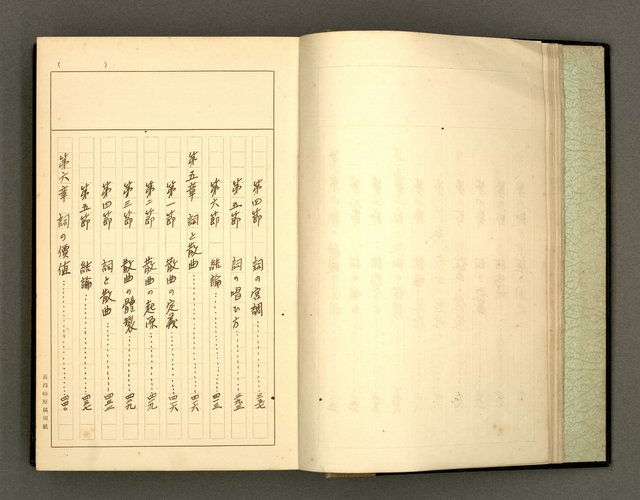 第四節 詞の宮調…………三七七
第五節 詞の唱ひ方…………三九三
第六節 結論…………四一三
第五章 詞と散曲…………四一六
第一節 散曲の定義…………四一六
第二節 散曲の起源…………四一九
第三節 散曲の體製…………四二九
第四節 詞と散曲…………四三二
第五節 結論…………四三七
第六章 詞の價値…………四四〇